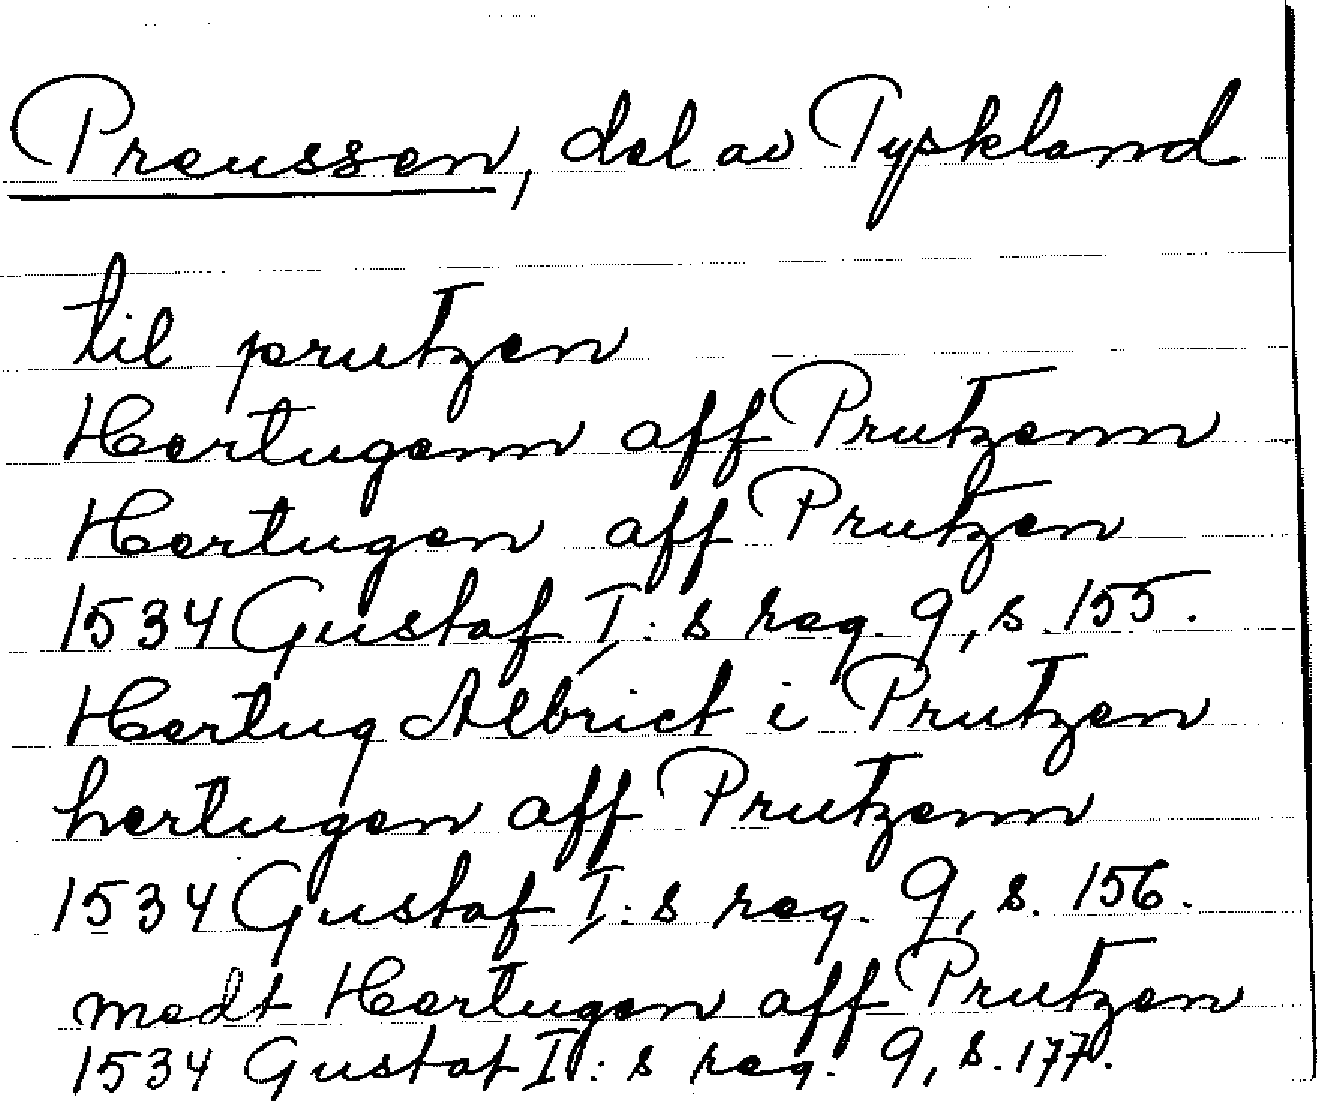 Preussen, del av Tyskland
til prutzen
Hertugenn aff Prutzenn
Hertugen aff Prutzen
1534 Gustaf I:s reg. 9, s. 155.
Hertug Albrict i Prutzen
hertugen aff Prutzenn
1534 Gustaf I:s reg. 9, s. 156.
medt Hertugen aff Prutzen
1534 Gustaf I:s reg. 9, s. 177.